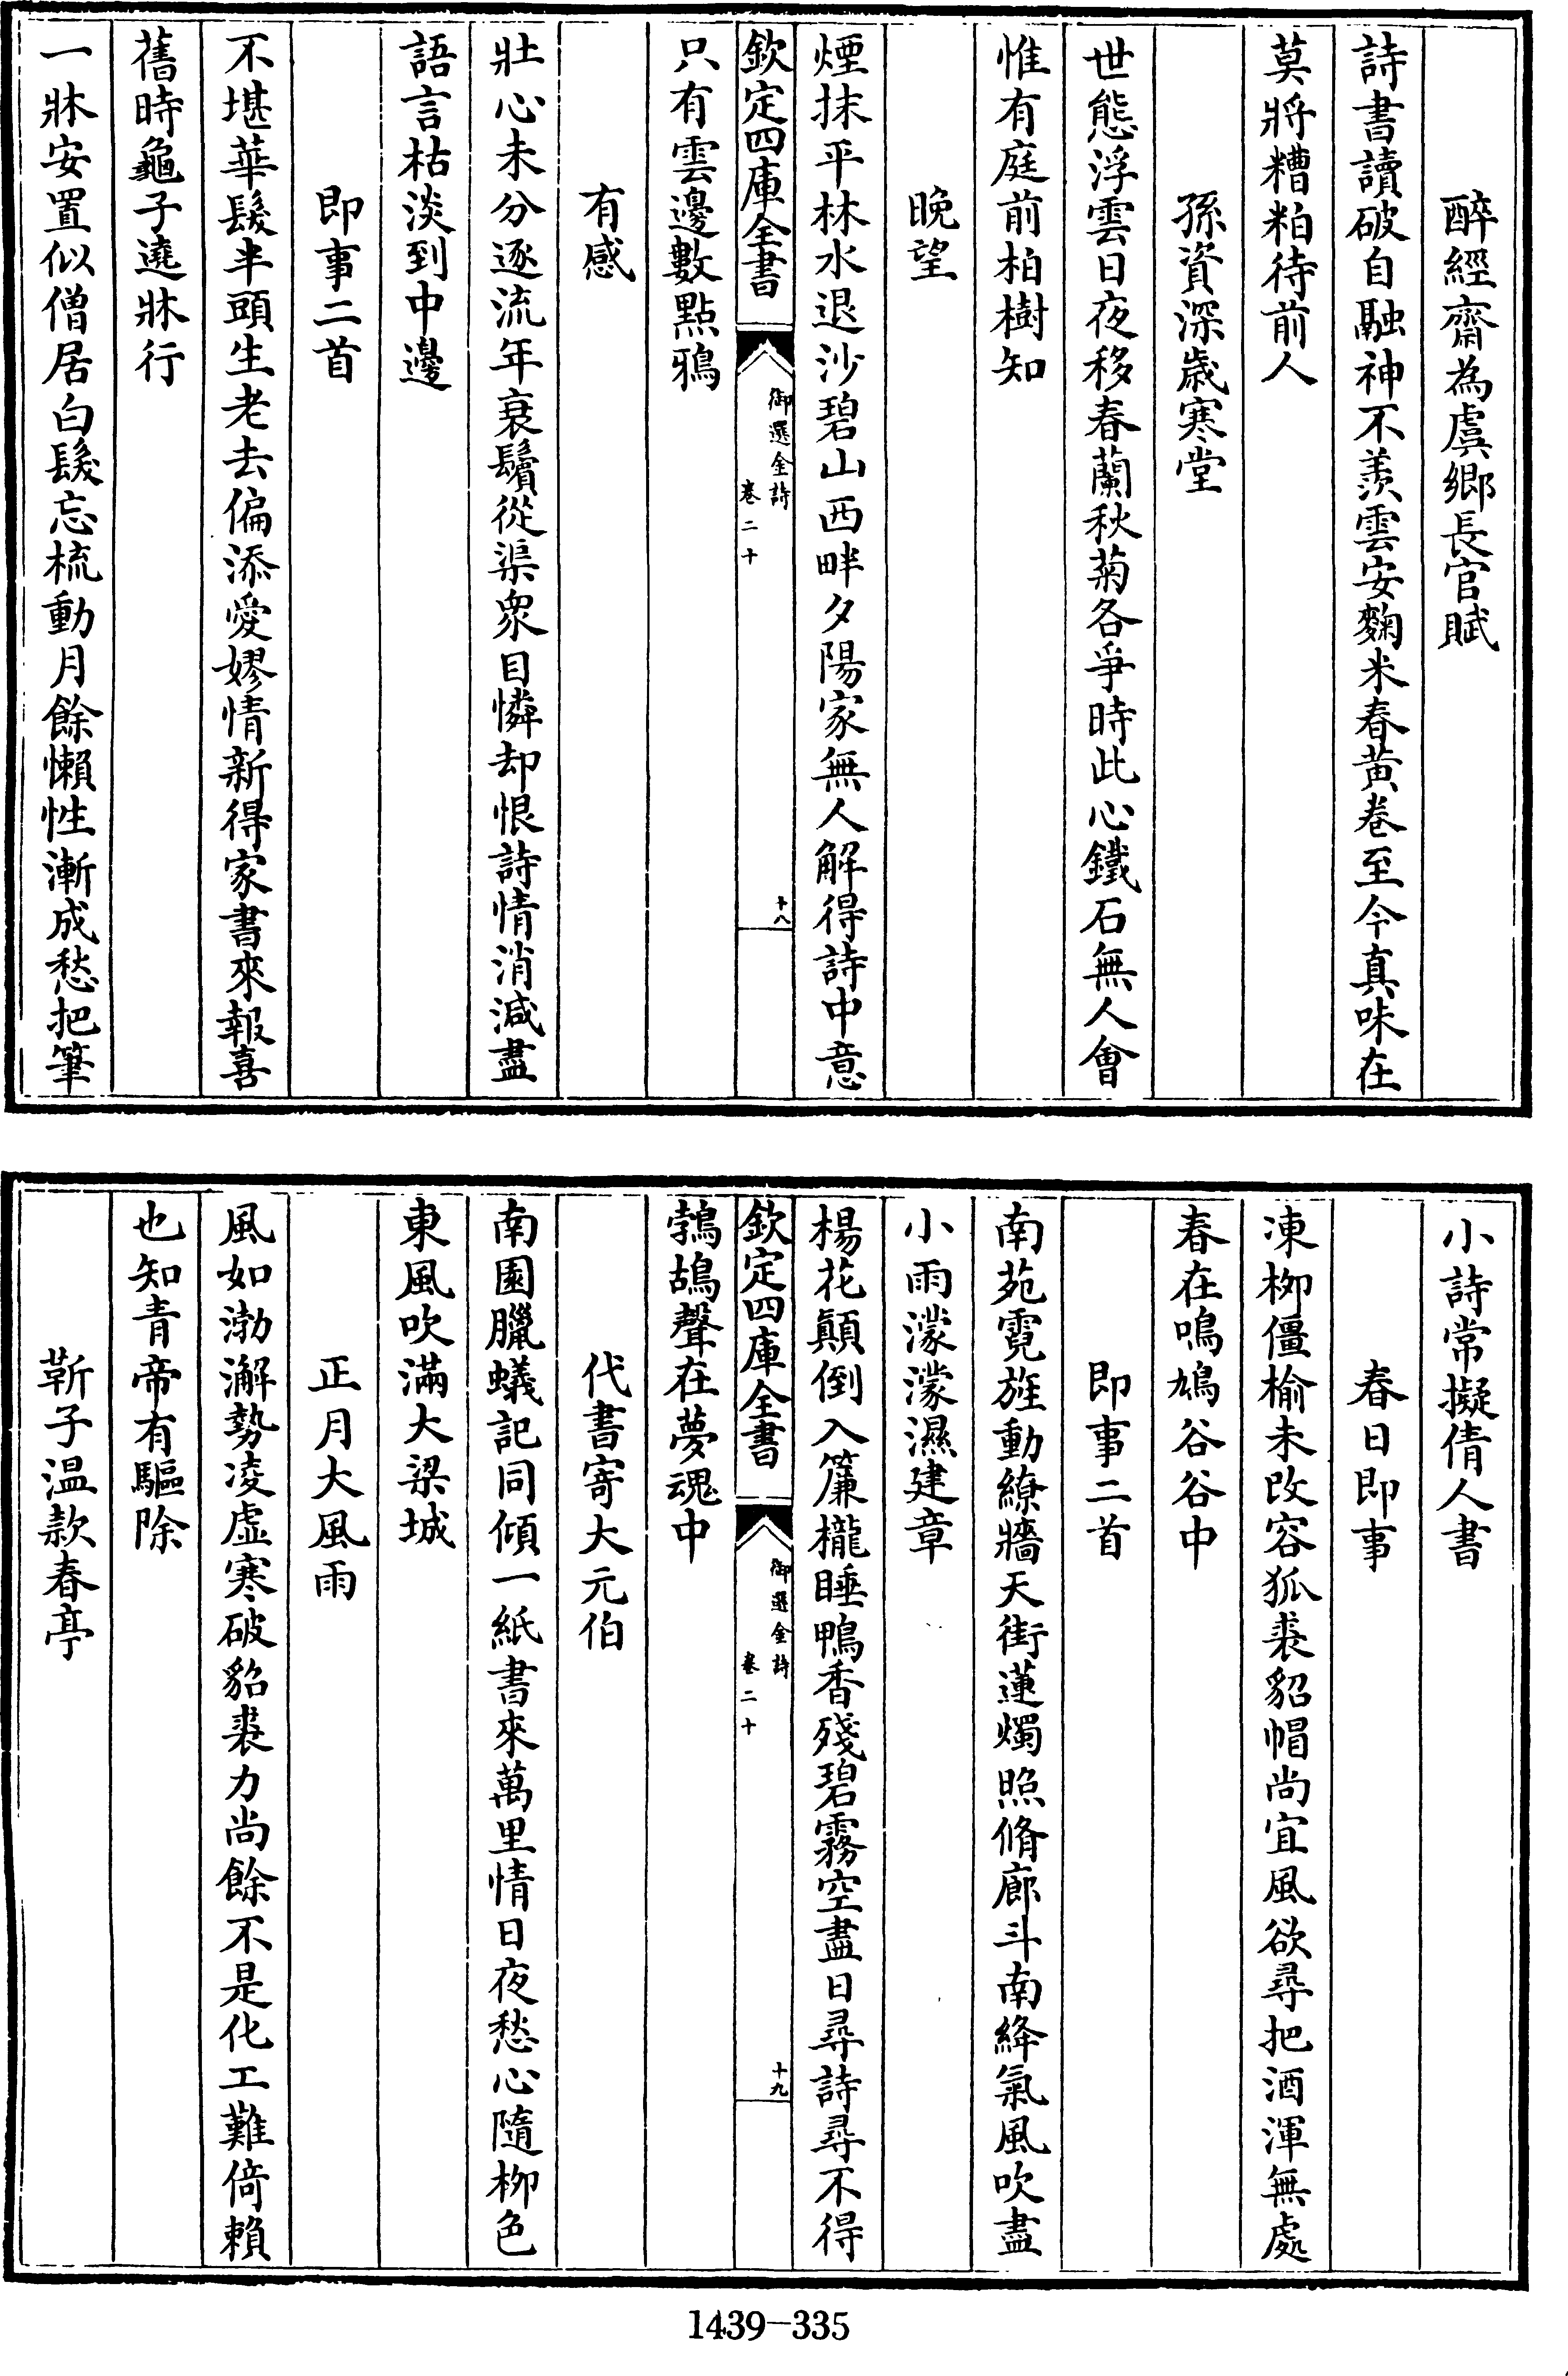 醉經齋為虞鄉長官賦
詩書讀破自融神不羨雲安麴米春黄卷至今真味在
莫將糟粕待前人
孫資深歲寒堂
世態浮雲日夜移春蘭秋菊各爭時此心鐵石無人會
惟有庭前柏樹知
晚望
煙抹平林水退沙碧山西畔夕陽家無人解得詩中意
欽定四庫全書
御選金詩
卷二十
十八
只有雲邊數點鴉
有感
壯心未分逐流年衰鬢從渠衆目憐却恨詩情消減盡
語言枯淡到中邊
即事二首
不堪華髮半頭生老去偏添愛嫪情新得家書來報喜
舊時龜子遶牀行
一牀安置似僧居白髮忘梳動月餘懶性漸成愁把筆
小詩常擬倩人書
春日即事
凍柳僵榆未改容狐裘貂帽尚宜風欲尋把酒渾無處
春在鳴鳩谷谷中
即事二首
南苑霓旌動繚牆天街蓮燭照脩廊斗南絳氣風吹盡
小雨濛濛濕建章
楊花顛倒入簾櫳睡鴨香殘碧霧空盡日尋詩尋不得
欽定四庫全書
御選金詩
卷二十
十九
鵓鴣聲在夢魂中
代書寄大元伯
南園臘蟻記同傾一紙書來萬里情日夜愁心隨柳色
東風吹滿大梁城
正月大風雨
風如渤澥勢凌虛寒破貂裘力尚餘不是化工難倚賴
也知青帝有驅除
靳子温款春亭
1439-335